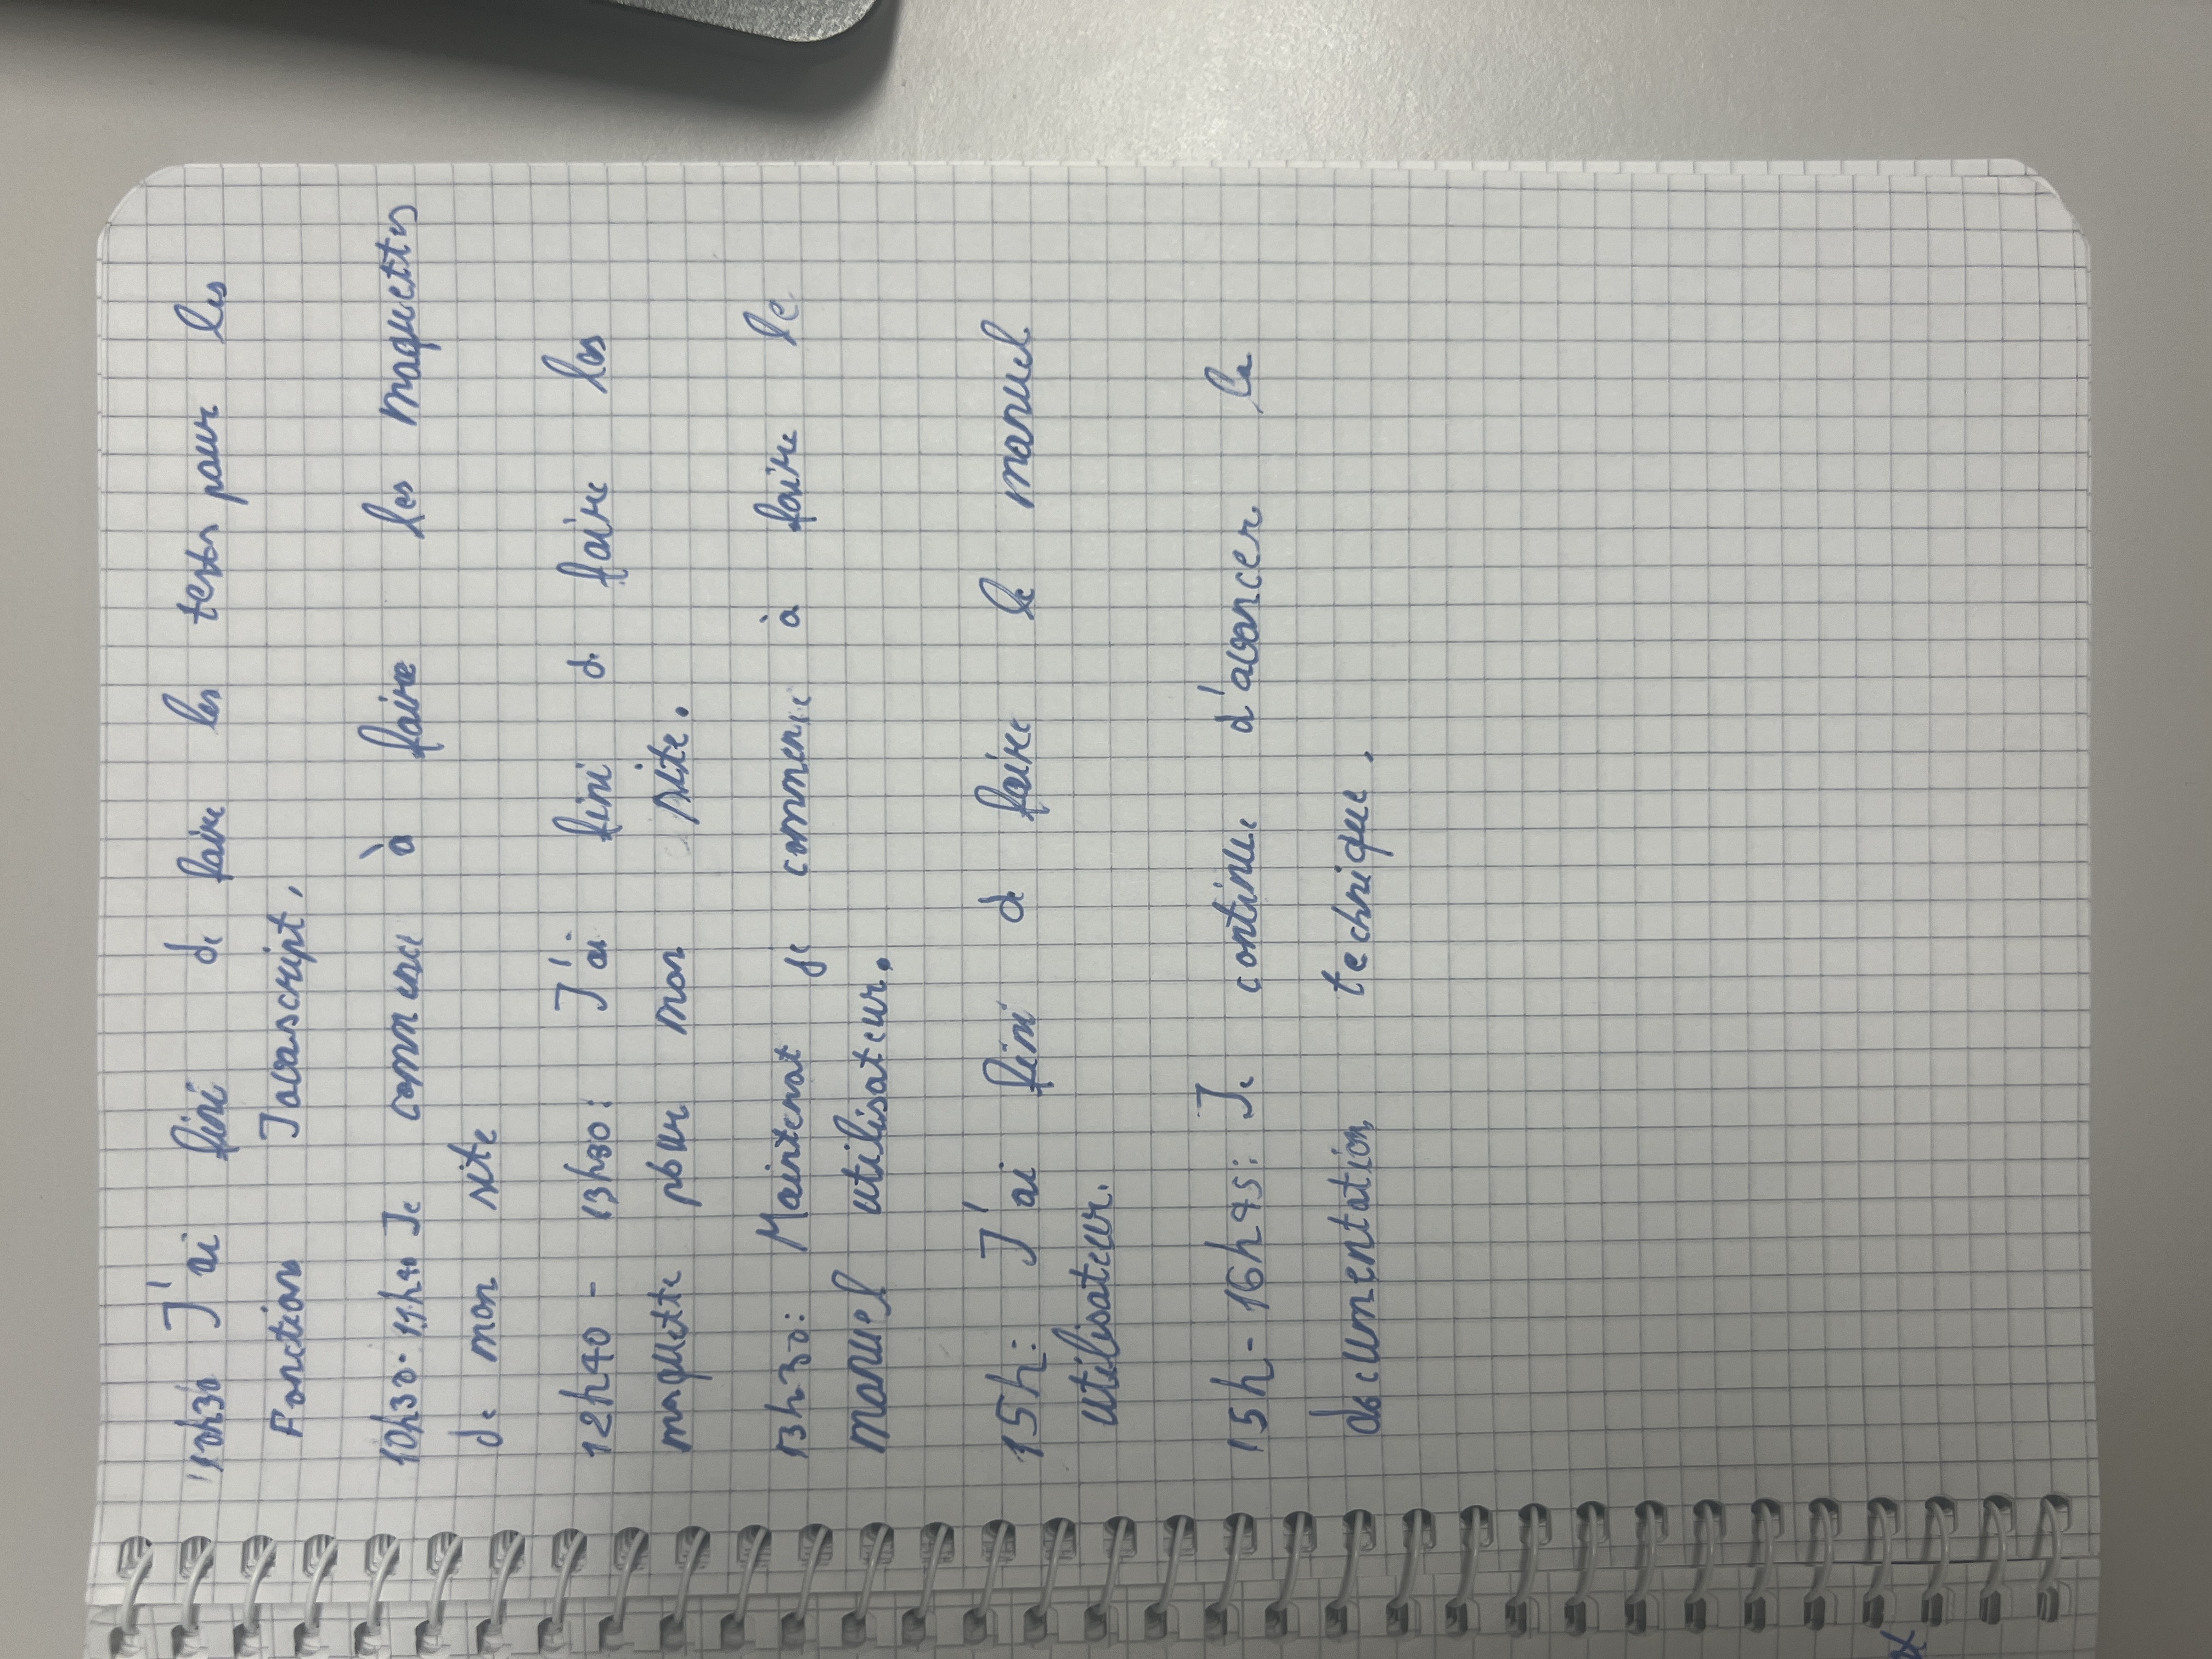 10h30 J'ai fini de faire les tests pour les
Fonctions Javascript.
10h30-11h40 Je commence à faire les maquettes
de mon site
12h40 - 13h30: J'ai fini de faire les
maquette pour mon site.
13h30: Maintenat je commence à faire le
manuel utilisateur.
15h: J'ai fini de faire le manuel
utilisateur.
15h-16h45: Je continue d'avancer la
documentation technique.